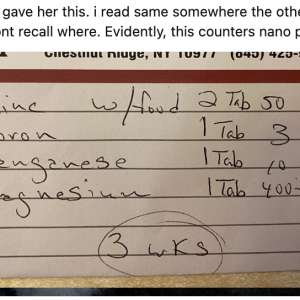 gave her this. i read same somewhere the othe
ont recall where. Evidently, this counters nano p
Chestnut Ridge, NY 10977 (845) 425-
inc w/food 2 Tab 50
oron 1 Tab 3
anganese 1 Tab 10
agnesium 1 Tab 400-
3 wks